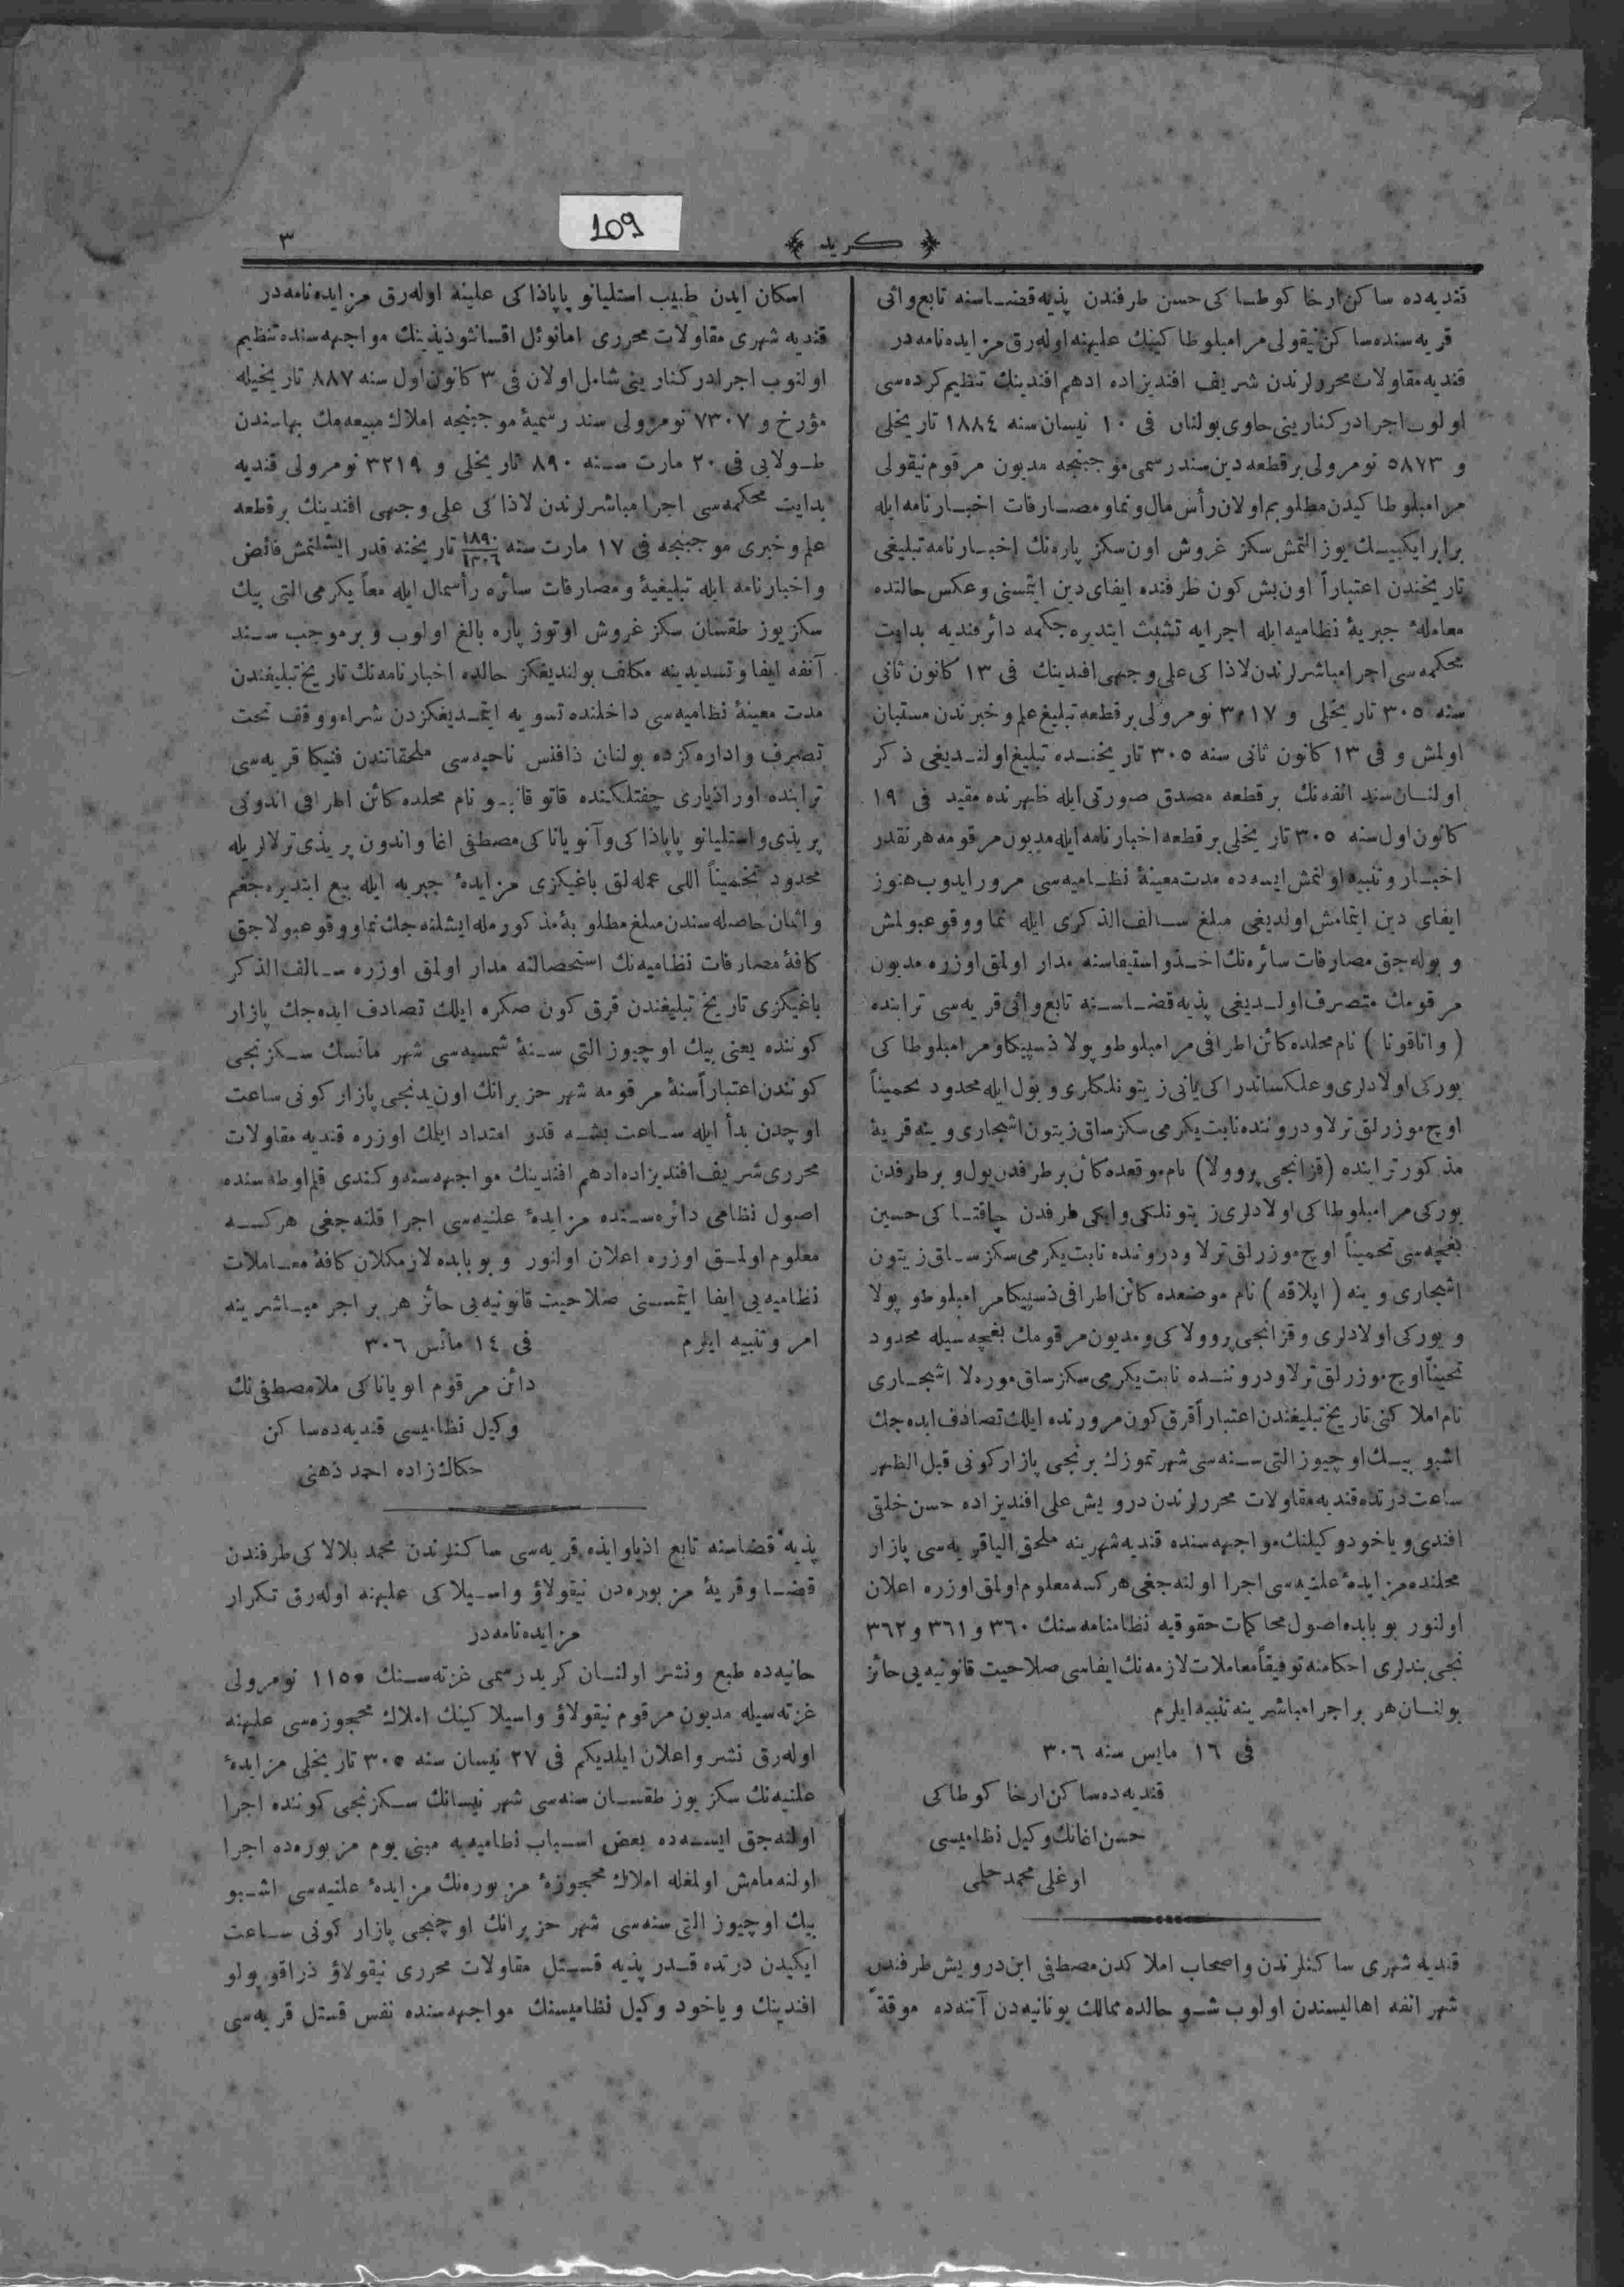 109
﴿ كريد ﴾
٣
قنديه‌ده ساكن ارخا كوطسا كى حسن طرفندن پذيه قضاسنه تابع واثى
قريه سنده ساكن نيقولى مرامبلوطا كينك عليهنه اوله‌رق مزايده نامه در
قنديه مقاولات محررلرندن شريف افنديزاده ادهم افندينك تنظيم كرده‌سى
اولوب اجرا در كنارينى حاوى بولنان فى ١٠ نيسان سنه ١٨٨٤ تاريخلى
و ٥٨٧٣ نومرولى بر قطعه دين سند رسمى موجبنجه مديون مرقوم نيقولى
مرامبلوطا كيدن مطلوبم اولان رأس مال و نما و مصارفات اخبارنامه ايله
برابر ايكيبيك يوز التمش سكز غروش اون سكز پاره‌نك اخبارنامه تبليغى
تاريخندن اعتباراً اون بش كون ظرفنده ايفاى دين ايتمسنى وعكس حالنده
معاملهٔ جبريهٔ نظاميه ايله اجرايه تشبث ايتديره‌جكمه دائر قنديه بدايت
محكمه‌سى اجرا مباشرلرندن لاذا كى على وجهى افندينك فى ١٣ كانون ثانى
سنه ٣٠٥ تاريخلى و ٣٠١٧ نومرولى بر قطعه تبليغ علم و خبرندن مستبان
اولمش و فى ١٣ كانون ثانى سنه ٣٠٥ تاريخنده تبليغ اولنديغى ذكر
اولنان سند انفه‌نك بر قطعه مصدق صورتى ايله ظهرنده مقيد فى ١٩
كانون اول سنه ٣٠٥ تاريخلى بر قطعه اخبارنامه ايله مديون مرقومه هرنقدر
اخبار و تنبيه اولنمش ايسه‌ده مدت معينهٔ نظاميه‌سى مرور ايدوب هنوز
ايفاى دين ايتمامش اولديغى مبلغ سالف الذكرى ايله نما و وقوعبولمش
و بوله‌جق مصارفات سائره‌نك اخذ و استيفاسنه مدار اولمق اوزره مديون
مرقومك متصرف اولديغى پذيه قضاسنه تابع واثى قريه‌سى ترابنده
( واتاقونا ) نام محلده كائن اطرافى مرامبلوطو پولا ذسپيكا و مرامبلوطا كى
يوركى اولادلرى و علكساندرا كى يانى زيتونلكلرى و يول ايله محدود تخميناً
اوچ موزرلق ترلا و دروننده نابت يكرمى سكز ساق زيتون اشجارى وينه قريهٔ
مذكور ترابنده (قزانجى پروولا) نام موقعده كائن بر طرفدن يول و بر طرفدن
يوركى مرامبلوطا كى اولادلرى زيتونلكى و ايكى طرفدن چاقتا كى حسين
بغچه‌سى تخميناً اوچ موزرلق ترلا و دروننده نابت يكرمى سكز ساق زيتون
اشجارى وينه ( اپلاقه ) نام موضعده كائن اطرافى ذسپيكا مرامبلوطو پولا
و يوركى اولادلرى و قزانجى پروولا كى و مديون مرقومك بغچه‌سيله محدود
تخميناً اوچ موزرلق ترلا و دروننده نابت يكرمى سكز ساق موره‌لا اشجارى
نام املاكنى تاريخ تبليغندن اعتباراً قرق كون مرورنده ايلك تصادف ايده‌جك
اشبو بيك اوچيوز التى سنه‌سى شهر تموزك برنجى پازار كونى قبل الظهر
ساعت درتده قنديه مقاولات محررلرندن درويش على افنديزاده حسن خلقى
افندى و ياخود وكيلنك مواجهه‌سنده قنديه شهرينه ملحق الياقريه‌سى پازار
محلنده مزايدهٔ علنيه‌سى اجرا اولنه‌جغى هركسه معلوم اولمق اوزره اعلان
اولنور بو بابده اصول محاكمات حقوقيه نظامنامه سنك ٣٦٠ و ٣٦١ و ٣٦٢
نجى بندلرى احكامنه توفيقاً معاملات لازمه‌نك ايفاسى صلاحيت قانونيه‌يى حائز
بولنان هر بر اجرا مباشرينه تنبيه ايلرم
فى ١٦ مايس سنه ٣٠٦
قنديه‌ده ساكن ارخا كوطا كى
حسن اغانك وكيل نظاميسى
اوغلى محمد حلمى
قنديه شهرى ساكنلرندن و اصحاب املاكدن مصطفى ابن درويش طرفندن
شهر انفه اهاليسندن اولوب شو حالده ممالك يونانيه‌دن آتنه‌ده موقةً
اسكان ايدن طبيب استليانو پاپاذا كى علينه اوله‌رق مزايده نامه در
قنديه شهرى مقاولات محررى امانوئل اقسانثوذيذينك مواجهه سنده تنظيم
اولنوب اجرا در كنارينى شامل اولان فى ٣ كانون اول سنه ٨٨٧ تاريخيله
مؤرخ و ٧٣٠٧ نومرولى سند رسميهٔ موجبنجه املاك مبيعه‌مك بهاسندن
طولايى فى ٢٠ مارت سنه ٨٩٠ تاريخلى و ٣٢١٩ نومرولى قنديه
بدايت محكمه‌سى اجرا مباشرلرندن لاذا كى على وجهى افندينك بر قطعه
علم و خبرى موجبنجه فى ١٧ مارت سنه ١٨٩٠/١٣٠٦ تاريخنه قدر ايشلنمش فائض
و اخبارنامه ايله تبليغيهٔ و مصارفات سائره رأسمال ايله معاً يكرمى التى بيك
سكز يوز طقسان سكز غروش اوتوز پاره بالغ اولوب و بر موجب سند
آنفه ايفا و تسديدينه مكلف بولنديغكز حالده اخبارنامه‌نك تاريخ تبليغندن
مدت معينهٔ نظاميه‌سى داخلنده تسويه ايتمديغكزدن شراء و وقف تحت
تصرف و اداره‌كزده بولنان ذافنس ناحيه‌سى ملحقاتندن فنيكا قريه‌سى
ترابنده اوراذيارى چفتلكنده قاتو قانبو نام محلده كائن اطرافى اندونى
پريذى و استليانو پاپاذا كى و آنو يانا كى مصطفى اغا و اندون پريذى ترلالريله
محدود تخميناً اللى عمله‌لق باغيكزى مزايدهٔ جبريه ايله بيع ايتديره‌جغم
و اثمان حاصله سندن مبلغ مطلوبهٔ مذكورمله ايشلنه‌جك نما و وقوعبولاجق
كافهٔ مصارفات نظاميه‌نك استحصالنه مدار اولمق اوزره سالف الذكر
باغيكزى تاريخ تبليغندن قرق كون صكره ايلك تصادف ايده‌جك پازار
كوننده يعنى بيك اوچيوز التى سنهٔ شمسيه‌سى شهر مائسك سكزنجى
كونندن اعتباراً سنهٔ مرقومه شهر حزيرانك اون يدنجى پازار كونى ساعت
اوچدن بدأ ايله ساعت بشه قدر امتداد ايلمك اوزره قنديه مقاولات
محررى شريف افنديزاده ادهم افندينك مواجهه‌سنده و كندى قلم اوطه سنده
اصول نظامى دائره‌سنده مزايدهٔ علنيه‌سى اجرا قلنه‌جغى هركسه
معلوم اولمق اوزره اعلان اولنور و بو بابده لازمكلان كافهٔ معاملات
نظاميه‌يى ايفا ايتمسنى صلاحيت قانونيه‌يى حائز هر بر اجرا مباشرينه
امر و تنبيه ايلرم فى ١٤ مائس ٣٠٦
دائن مرقوم انو يانا كى ملا مصطفى‌نك
وكيل نظاميسى قنديه‌ده ساكن
حكاك زاده احمد ذهنى
پذيه قضاسنه تابع اذياوايذه قريه‌سى ساكنلرندن محمد بلالا كى طرفندن
قضا و قريهٔ مزبوره‌دن نيقولاؤ واسيلا كى عليهنه اوله‌رق تكرار
مزايده نامه در
حانيه‌ده طبع و نشر اولنان كريد رسمى غزته سنك ١١٥٠ نومرولى
غزته سيله مديون مرقوم نيقولاؤ واسيلا كينك املاك محجوزه‌سى عليهنه
اوله‌رق نشر و اعلان ايلديكم فى ٢٧ نيسان سنه ٣٠٥ تاريخلى مزايدهٔ
علنيه‌نك سكز يوز طقسان سنه‌سى شهر نيسانك سكزنجى كوننده اجرا
اولنه‌جق ايسه‌ده بعض اسباب نظاميه‌يه مبنى يوم مزبوره‌ده اجرا
اولنه‌مامش اولمغله املاك محجوزهٔ مزبوره‌نك مزايدهٔ علنيه‌سى اشبو
بيك اوچيوز التى سنه‌سى شهر حزيرانك اوچنجى پازار كونى ساعت
ايكيدن درته قدر پذيه قستل مقاولات محررى نيقولاؤ ذراقو پولو
افندينك و ياخود وكيل نظاميسنك مواجهه سنده نفس قستل قريه‌سى